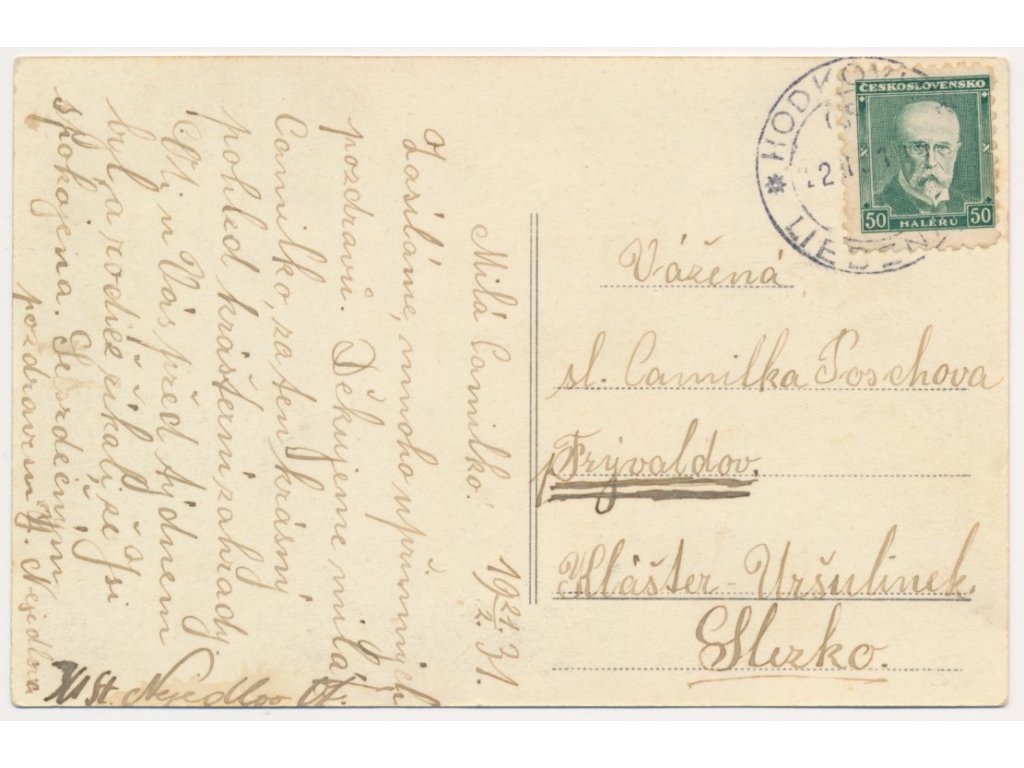 Milá Camilko! 19 21/2. 31.
Zasíláme, mnoho upřímných
pozdravů. Děkujeme milá
Camilko, za ten krásný
pohled klášterní zahrady.
M. n Vás před týdnem
byla rodiče říkali, že jsi
spokojena. Se srdečným
pozdravem M. Nejedlova
St. Nejedlov
HODKOV
LIEBEN
ČESKOSLOVENSKO
50 HALÉŘŮ 50
Vážená
sl. Camilka Poschova
Frývaldov.
Klášter-Uršulínek.
Slezko.